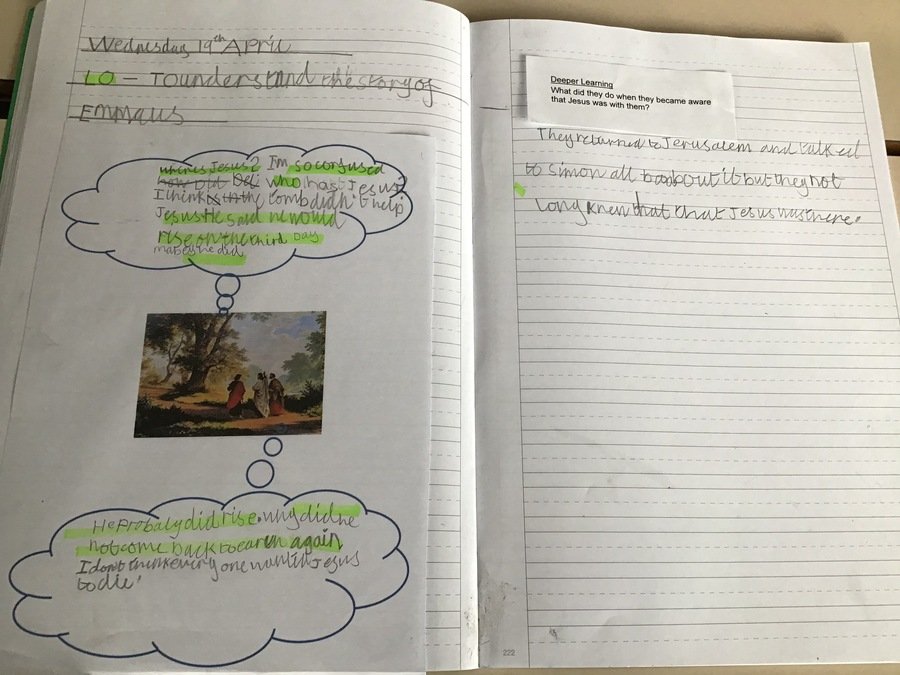 Wednesday 19th April
LO - To understand the story of
Emmaus
wheres Jesus? Im so confused
how did Did who has t Jesus?
I think the tomb didn't help
Jesus He said he would
rise on the third Day
maybe he did
He Probaly did rise. why did he
not come back to earth again
I dont think every one wanted Jesus
to die.
Deeper Learning
What did they do when they became aware
that Jesus was with them?
They returned to Jerusalem and talked
to simon all about it but they not
long knew that that Jesus was there.
222